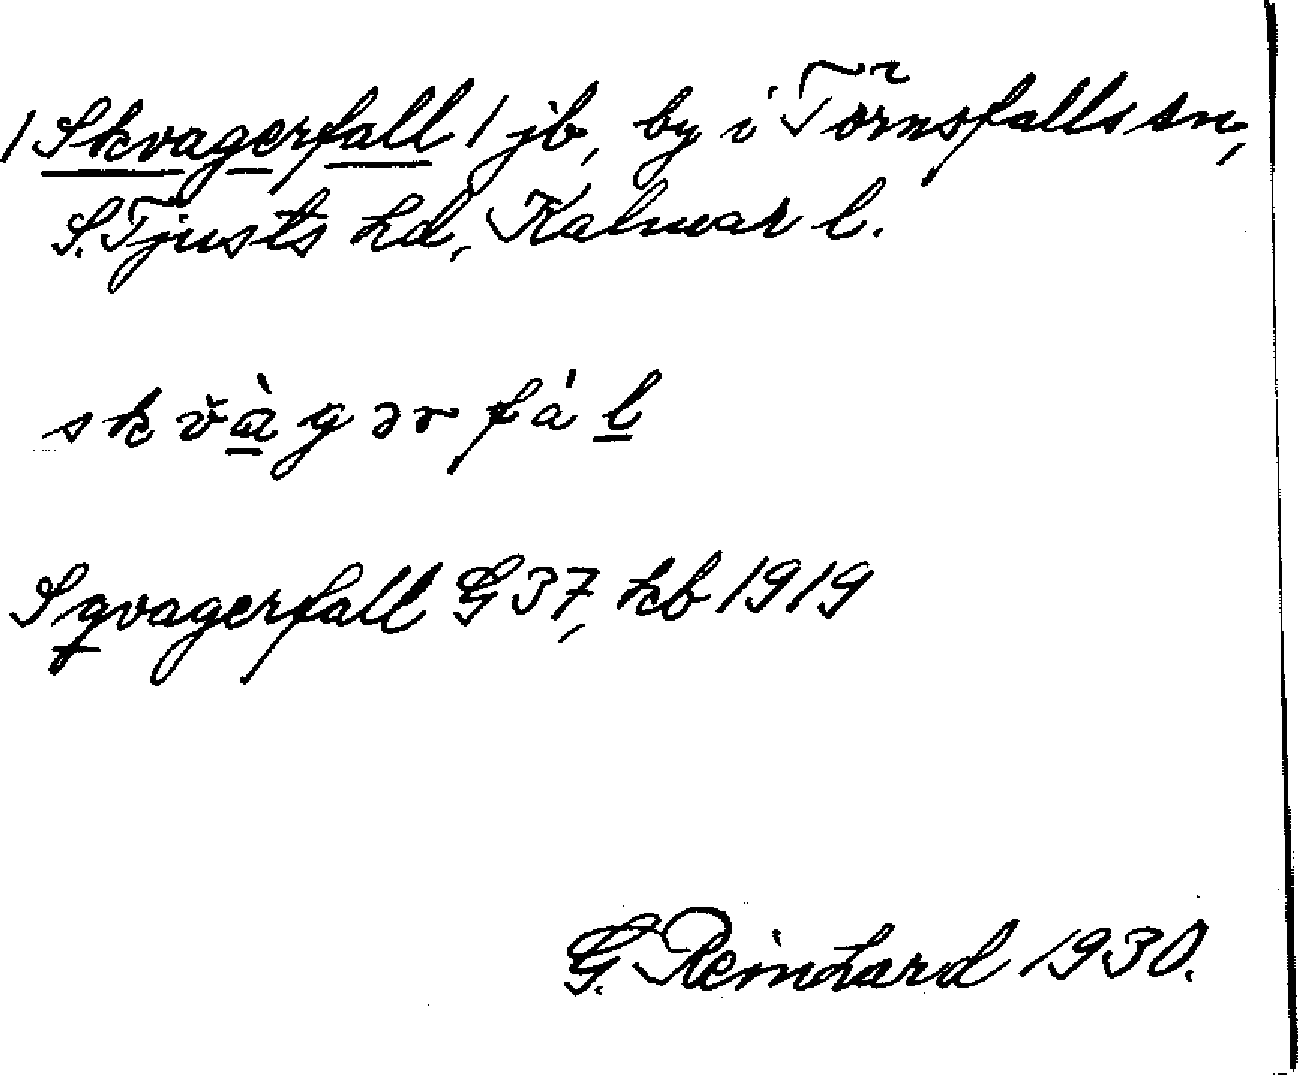 /Skvagerfall/ jb, by i Törnsfalls sn,
S. Tjusts hd, Kalmar l.
skv̌àgərfál
Sqvagerfall G 37, kb 1919
G. Reinhard 1930.